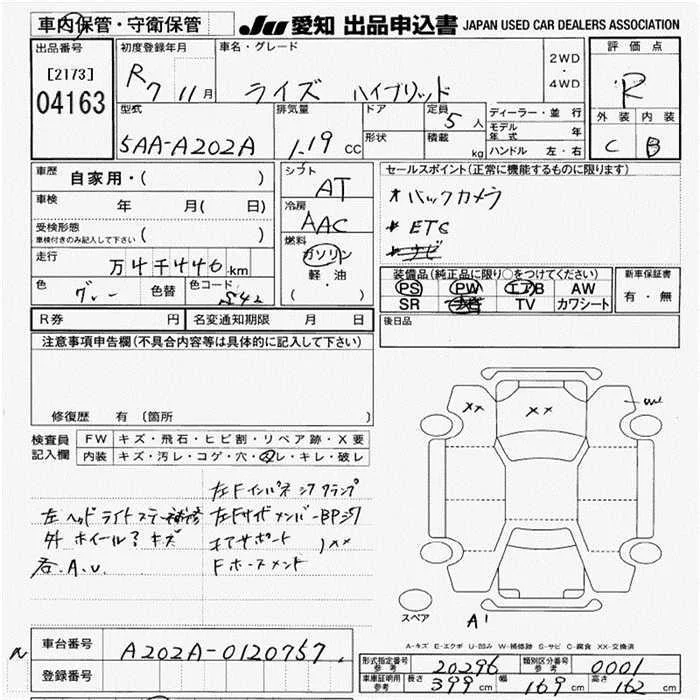 車内保管・守衛保管 JU 愛知 出品申込書 JAPAN USED CAR DEALERS ASSOCIATION
出品番号 初度登録年月 車名・グレード 2WD・4WD 評価点
[2173] R7 11月 ライズ ハイブリッド R
04163 型式 排気量 ドア 定員 5人 ディーラー・並行 外装 内装
5AA-A202A 1.19 CC 形状 積載 kg モデル年式 年 C B
ハンドル 左・右
車歴 自家用・( ) シフト AT セールスポイント(正常に機能するものに限ります)
車検 年 月( 日) 冷房 AAC *バックカメラ
受検形態 ( ) *ETC
車検付きのみ記入して下さい 燃料 ガソリン
走行 万4千446km 軽油 装備品(純正品に限り○をつけてください) 新車保証書
色 グレー 色替 色コード S42 ( ・ ) PS PW エアB AW 有・無
SR TV カワシート
R券 円 名変通知期限 月 日 後日品
注意事項申告欄(不具合内容等は具体的に記入して下さい)
修復歴 有 (箇所
検査員記入欄 FW キズ・飛石・ヒビ割・リペア跡・X要
内装 キズ・汚レ・コゲ・穴・スレ・キレ・破レ
XX XX
左Fインパネ シワ クランプ
左 ヘッドライトステー補修 左Fサイドメンバー BPシワ
外 ホイール3 キズ コアサポート XX
Fホースメント
スペア A1
A-キズ E-エクボ U-凹み W-補修跡 S-サビ C-腐食 XX-交換済
車台番号 A202A-0120757
登録番号
形式指定番号 参考 20296 類別区分番号 参考 0001
車庫証明用 参考 長さ 399cm 幅 169cm 高さ 162cm